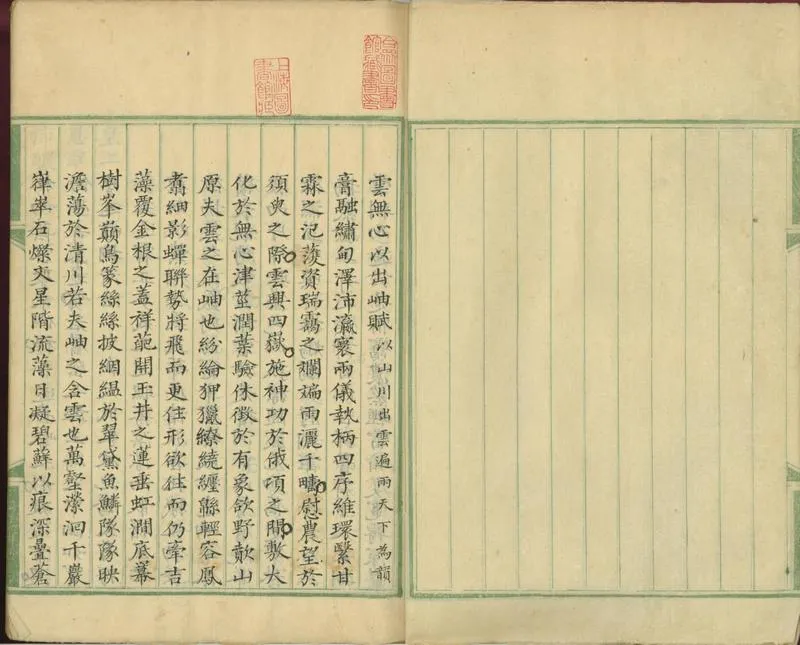 雲無心以出岫賦以山川出雲遍雨天下為韻
膏融繡甸澤沛瀛寰兩儀執柄四序維環繄甘
霖之汜濩資瑞靄之斕斒雨灑千疇慰農望於
須臾之際雲興四嶽施神功於俄頃之間敷大
化於無心津莖潤葉驗休徵於有象歘野歊山
原夫雲之在岫也紛綸狎獵繚繞纏緜輕容鳳
翥細影蟬聯勢將飛而更住形欲往而仍牽吉
藻覆金根之蓋祥葩開玉井之蓮垂虹澗底幕
樹峯巔鳥篆絲絲披絪縕於翠黛魚鱗隊隊映
澹蕩於清川若夫岫之含雲也萬壑瀠洄千巖
嶭崒石燦夾星階流藻日凝碧蘚以痕深疊蒼
上海圖書館藏